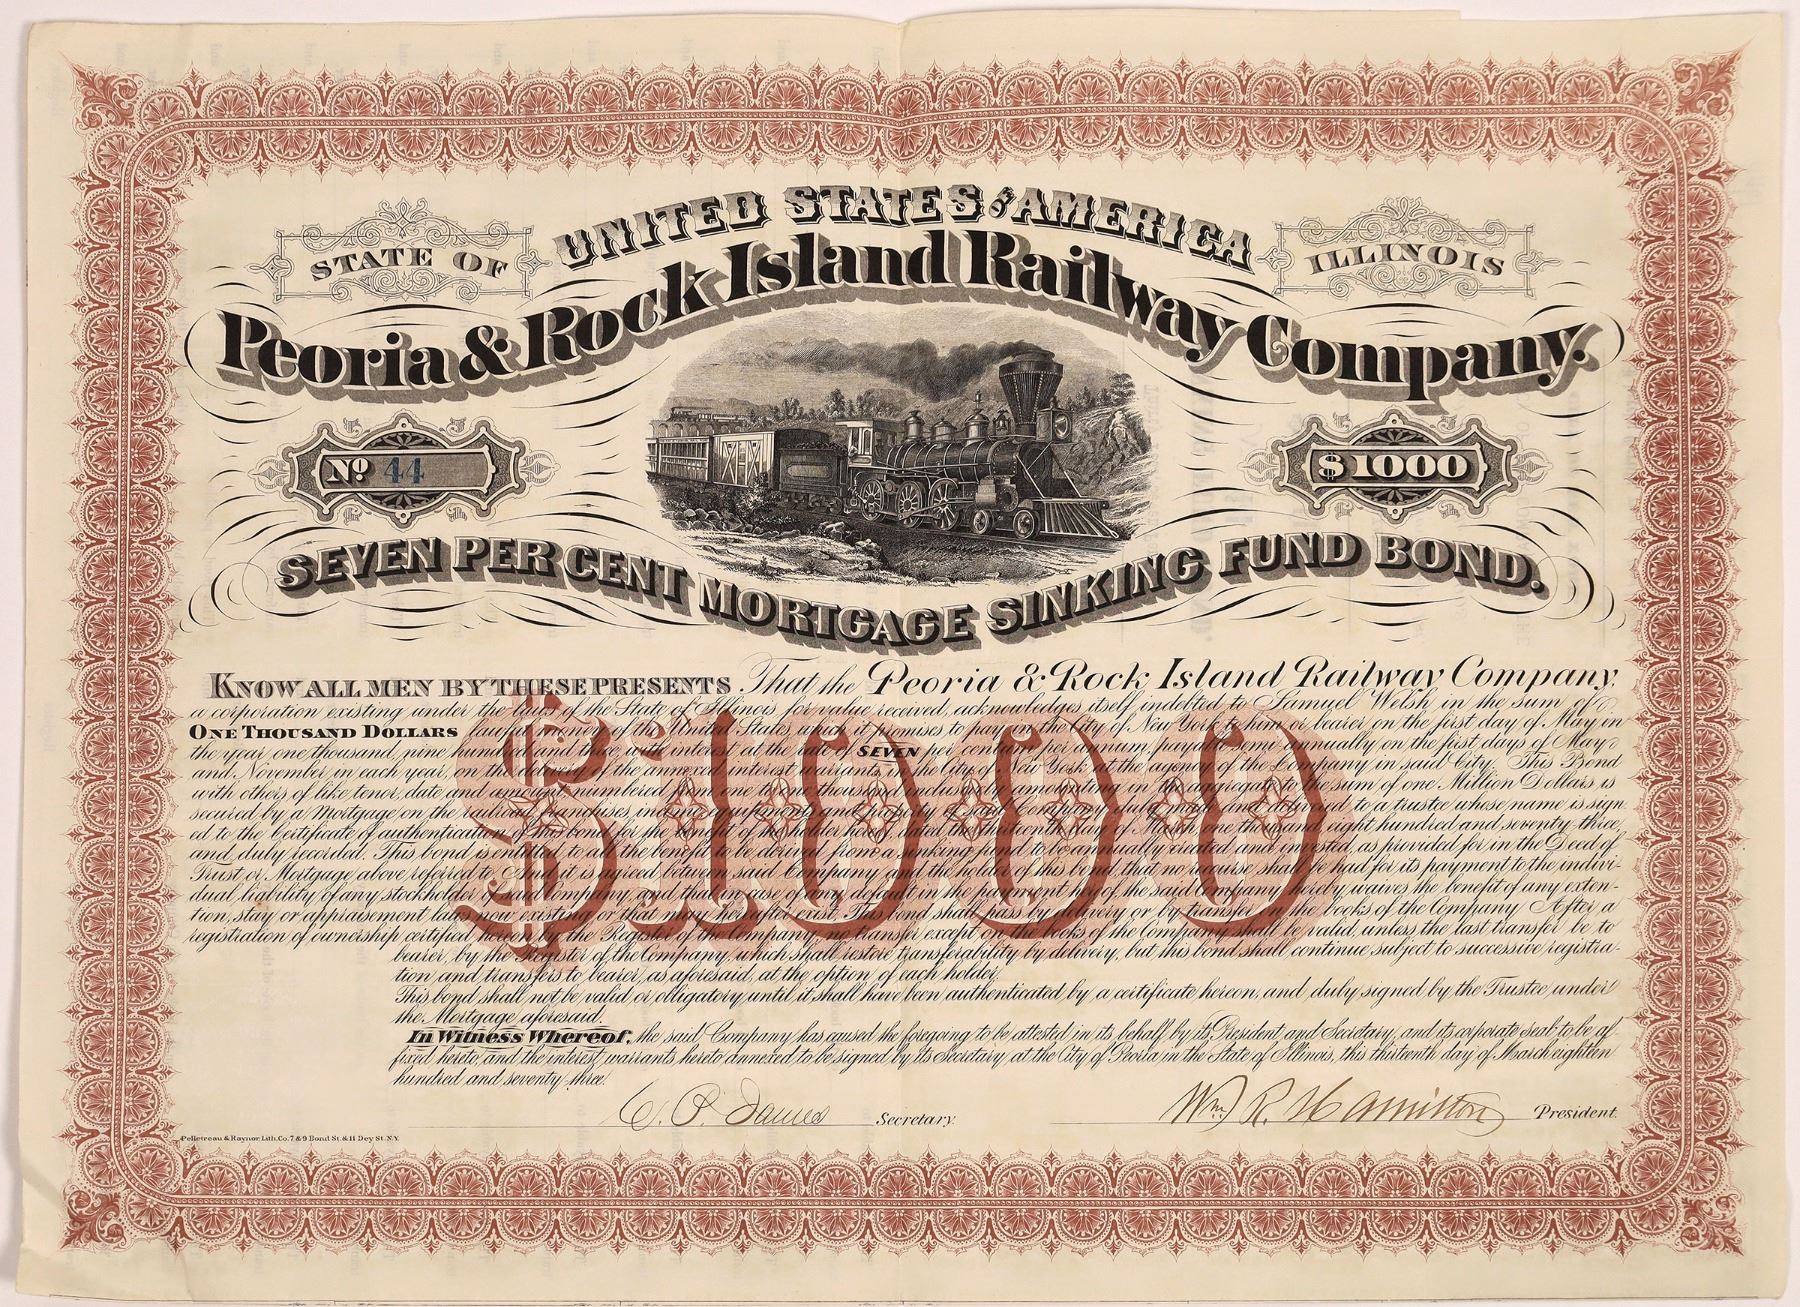 UNITED STATES OF AMERICA
STATE OF
ILLINOIS
Peoria & Rock Island Railway Company.
No. 44
$1000
SEVEN PER CENT MORTGAGE SINKING FUND BOND.
KNOW ALL MEN BY THESE PRESENTS That the Peoria & Rock Island Railway Company,
a corporation existing under the laws of the State of Illinois for value received, acknowledges itself indebted to Samuel Welsh in the sum of
ONE THOUSAND DOLLARS lawful money of the United States, which it promises to pay in the City of New York to him or bearer on the first day of May in
the year one thousand, nine hundred and three with interest at the rate of SEVEN per centum per annum, payable semi annually on the first days of May
and November in each year, on the delivery of the annexed interest warrants, in the City of New York at the agency of the Company in said City. This Bond
with others of like tenor, date and amount, numbered from one to one thousand inclusively amounting in the aggregate to the sum of one Million Dollars is
secured by a Mortgage on the railroad, franchises, income, equipments and property of said Company duly made and delivered to a trustee whose name is sign-
ed to the Certificate of authentication of this bond for the benefit of the holder hereof, dated the thirteenth day of March, one thousand eight hundred and seventy-three,
and duly recorded. This bond is entitled to all the benefit to be derived from a sinking fund to be annually created and invested, as provided for in the Deed of
Trust or Mortgage above referred to. And it is agreed between said Company and the holder of this bond, that no recourse shall be had for its payment to the indivi-
dual liability of any stockholder of said Company, and that in case of any default in the payment hereof the said Company hereby waives the benefit of any exten-
tion, stay or appraisement laws now existing or that may hereafter exist. This bond shall pass by delivery or by transfer on the books of the Company After a
registration of ownership certified hereon by the Register of the Company, no transfer except on the books of the Company shall be valid, unless the last transfer be to
bearer, by the Register of the Company, which shall restore transferability by delivery, but this bond shall continue subject to successive registra-
tion and transfers to bearer, as aforesaid, at the option of each holder.
This bond shall not be valid or obligatory until it shall have been authenticated by a certificate hereon, and duly signed by the Trustee under
the Mortgage aforesaid.
In Witness Whereof, the said Company has caused the foregoing to be attested in its behalf by its President and Secretary, and its corporate seal to be af-
fixed hereto, and the interest warrants hereto annexed to be signed by its Secretary, at the City of Peoria in the State of Illinois, this thirteenth day of March eighteen
hundred and seventy three.
$1000
C. P. James Secretary.
Wm R. Hamilton President.
Pelletreau & Raynor, Lith. Co. 7 & 9 Bond St. & 11 Dey St. N.Y.